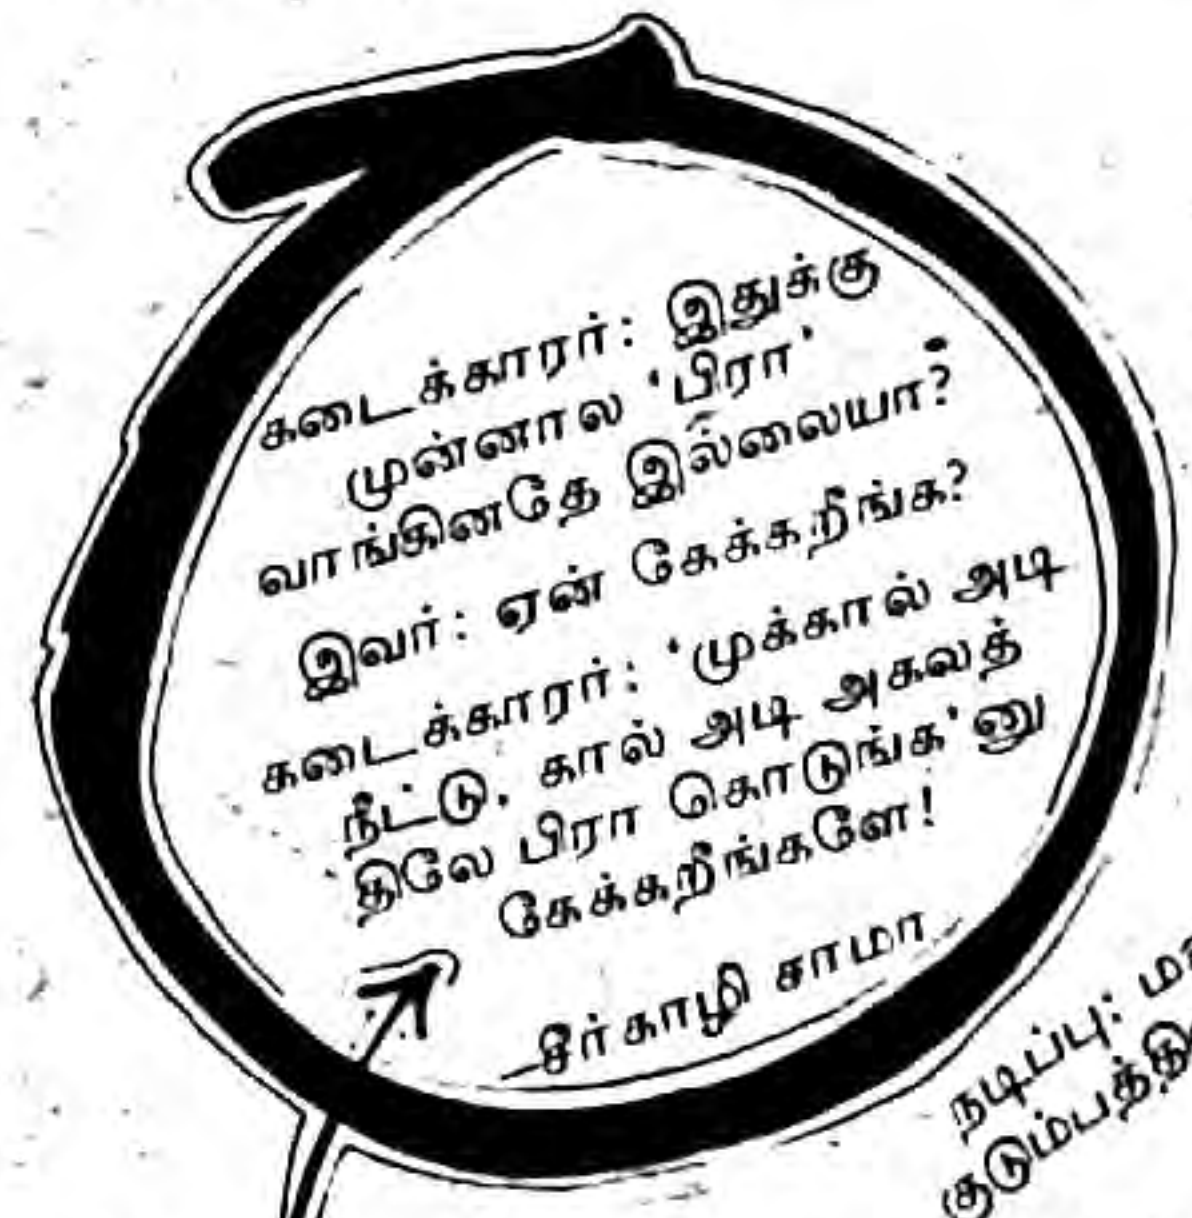 கடைக்காரர்: இதுக்கு
முன்னால 'பிரா'
வாங்கினதே இல்லையா?
இவர்: ஏன் கேக்கறீங்க?
கடைக்காரர்: 'முக்கால் அடி
நீட்டு, கால் அடி அகலத்
திலே பிரா கொடுங்க'னு
கேக்கறீங்களே!
—சீர்காழி சாமா
நடிப்பு: